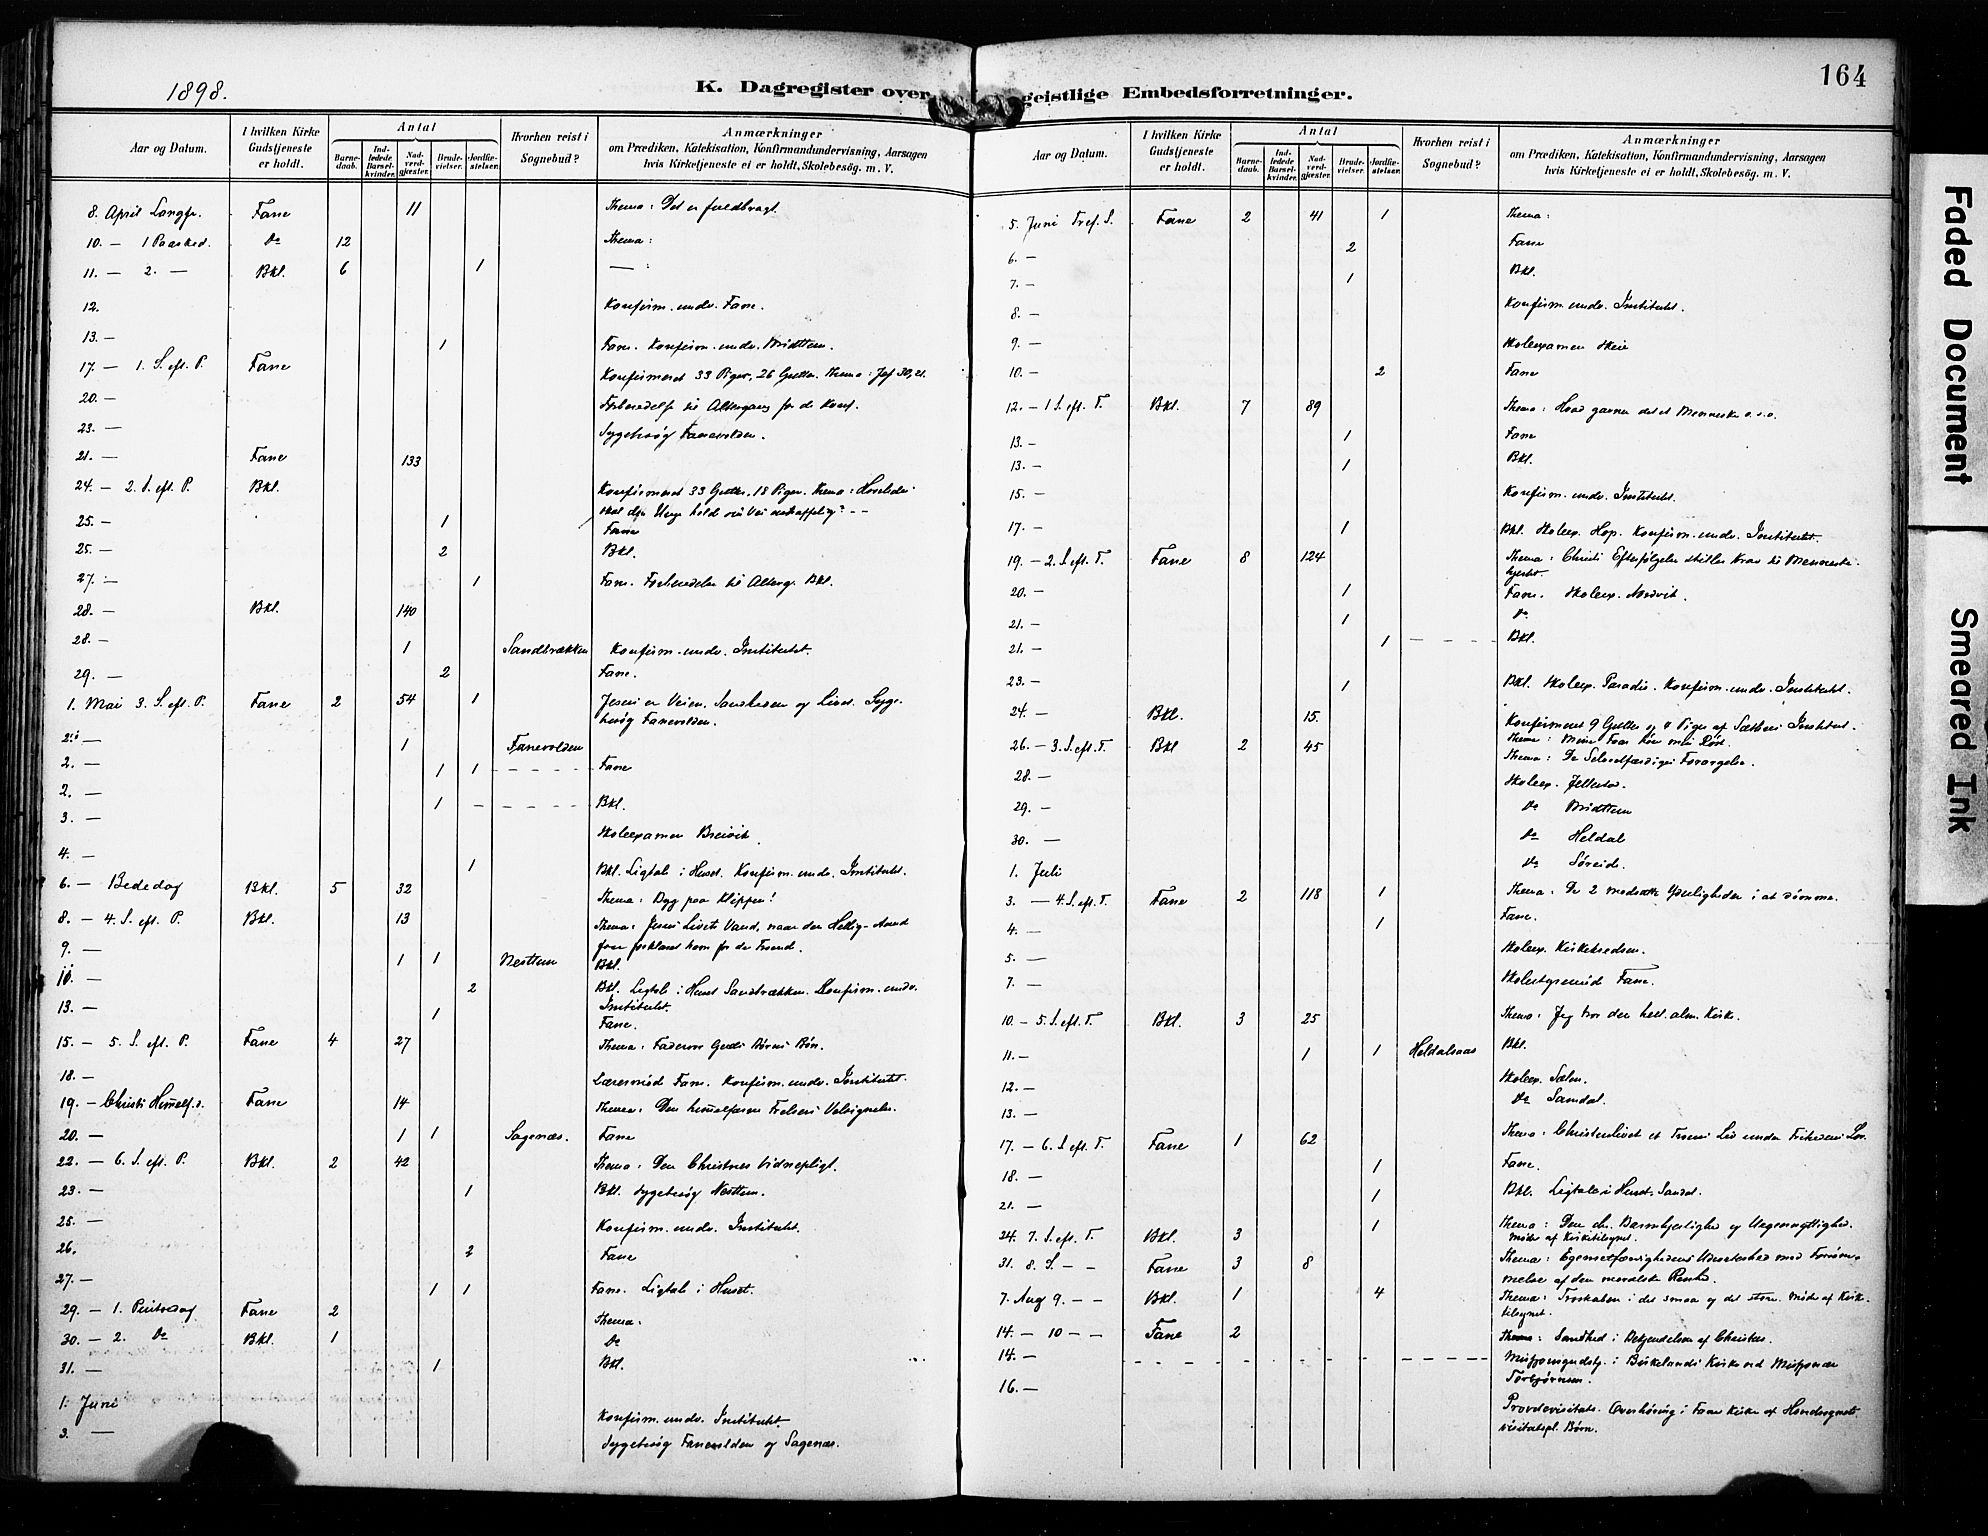 1898.
K. Dagregister over geistlige Embedsforretninger.
164
Aar og Datum. | I hvilken Kirke Gudstjeneste er holdt. | Antal | Barnedaab. | Indledede Barselkvinder. | Nadverdgjæster. | Brudevielser. | Jordfæstelser. | Hvorhen reist i Sognebud? | Anmærkninger om Prædiken, Katekisation, Konfirmandundervisning, Aarsagen hvis Kirketjeneste ei er holdt, Skolebesøg. m. V.
8. April Langfr. Fane 11 Thema: Det er fuldbragt.
10. — 1 Paasked. Do 12 Thema:
11. — 2. — Bkl. 6 1 — :
12. Konfirm. undv. Fane.
13. — 1 Fane. Konfirm. undv. Midttun.
17. — 1. S. eft. P. Fane Konfirmeret 33 Piger, 26 Gutter. Thema:
20. — Forberedelse til Altergang for de Konf.
23. — Sygebesøg Fanevolden.
21. — Fane 133
24. — 2. S. eft. P. Bkl. Konfirmeret 33 Gutter. 18 Piger. Thema: Hvorledes
skal den Unge holde sin Vei ustraffelig? - -
25. — 1 Fane
25. — 2 Bkl.
27. — 1 Fane. Forberedelse til Alterg. Bkl.
28. — Bkl. 140
28. — 1 Sandbrækken Konfirm. undv. Institutet.
29. — 2 Fane.
1. Mai 3. S. eft. P. Fane 2 54 1 Jesus er Veien, Sandheden og Livet. Syge-
besøg Fanevolden.
2. — 1 Fanevolden
2. — 1 1 Fane
2. — 1 Bkl.
3. — Skoleexamen Breivik
4. — 1 Bkl. Ligtale i Huset. Konfirm. undv. Institutet.
6. — Bededag Bkl. 5 32 Thema: Byg paa Klippen!
8. — 4. S. eft. P. Bkl. 13 Thema: Jesus Livets Vand, naar den Hellig-Aand
faar forklaret ham for de Troend.
9. — 1 1 Nesttun Bkl.
10. — 2 Bkl. Ligtale i Huset Sandbrækken. Konfirm. undv.
Institutet.
13. — 1 Fane.
15. — 5. S. eft. P. Fane 4 27 Thema: Faderen Guds Børns Bøn.
18. — Læremøde Fane. Konfirm. undv. Institutet.
19. — Christi Himelf.d. Fane 14 Thema: Den himelfarne Frelsers Velsignelse.
20. — 1 1 Sagenæs. Fane
22. — 6. S. eft. P. Bkl. 2 42 Thema: Den Christnes Vidnepligt.
23. — 1 Bkl. Sygebesøg Nesttun.
25. — Konfirm. undv. Institutet.
26. 2 Fane
27. — 1 1 Fane. Ligtale i Huset.
29. — 1. Pintsedag Fane 2 Thema:
30. — 2. Do Bkl. 1 Do
31. — 1 Bkl.
1. Juni Konfirm. undv. Institutet.
3. — Sygebesøg Fanevolden og Sagenæs.
Aar og Datum. | I hvilken Kirke Gudstjeneste er holdt. | Antal | Barnedaab. | Indledede Barselkvinder. | Nadverdgjæster. | Brudevielser. | Jordfæstelser. | Hvorhen reist i Sognebud? | Anmærkninger om Prædiken, Katekisation, Konfirmandundervisning, Aarsagen hvis Kirketjeneste ei er holdt, Skolebesøg. m. V.
5. Juni Tref. S. Fane 2 41 1 Thema:
6. — 2 Fane
7. — 1 Bkl.
8. — Konfirm. undv. Institutet.
9. — Skoleexamen Skeie
10. — 2 Fane
12. — 1 S. eft. T. Bkl. 7 89 Thema: Hvad gavner det et Menneske o.s.v.
13. — 1 Fane
13. — 1 Bkl.
15. — Konfirm. undv. Institutet.
17. — 1 Bkl. Skoleex. Hop. Konfirm. undv. Institutet.
19. — 2. S. eft. T. Fane 8 124 Thema: Christi Efterfølgelse stiller Krav til Menneske-
hjertet.
20. — 1 Fane. Skoleex.
21. — 1 Do
21. — 1 Bkl.
23. — 1 Bkl. Skoleex. Paradis. Konfirm. undv. Institutet.
24. — Bkl. 15. Konfirmeret 9 Gutter og Piger af Institut.
Thema: Mine Faar høre min Røst.
26. — 3. S. eft. T. Bkl 2 45 Thema: De Selvretfærdiges Forargelse.
28. — Skoleex.
29. — Do Midttun
30. — Do Heldal
1. Juli Do Søreide
3. — 4. S. eft. T. Fane 2 118 1 Thema: De 2 modsatte Yderligheder i at dømme.
4. — 1 Fane.
5. — Skoleex. Kirkekredsen.
7. — Skolestyremøde Fane.
10. — 5. S. eft. T. Bkl. 3 25 Thema: Jeg tror den hell. alm. Kirke.
11. — 1 1 Heldalsaas Bkl.
12. — Skoleex. Sælen.
13. — Do Samdal.
17. — 6. S. eft. T. Fane 1 62 Thema: Christenlivet et Troens Liv under Frihedens Lov.
18. — 1 Fane.
21. — 1 Bkl. Ligtale i Huset. Sandal.
24. 7. S. eft. T. Bkl. 3 1 Thema: Den chr. Barmhjertighed og Uegennyttighed.
Møde af Kirketilsynet.
31. 8. S. — — Fane 3 8 Thema: Egenretfærdighedens
melse af den moralske
7. Aug 9. — — Bkl. 1 4 Thema: Troskaben i det smaa og det store. Møde af Kirke-
tilsynet.
14. — 10 — — Fane 2 Thema: Sandhed i Bekjendelsen af Christus.
14. — Missionsgudstj. i Birkelands Kirke ved Missionær
Torbjørnsen.
16. — Provstevisitats. Overhøring i Fane Kirke af Hovedsognets
visitatspl. Børn.
Faded Document
Smeared Ink